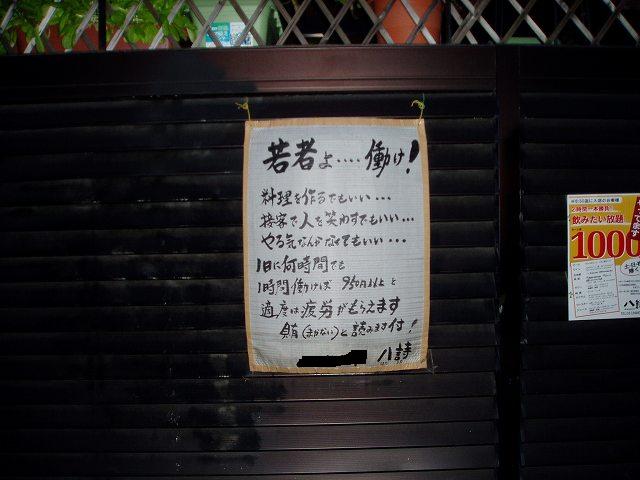 若者よ‥‥働け!
料理を作るでもいい…
接客で人を笑わすでもいい…
やる気なんかなくてもいい…
1日に何時間でも
1時間働けば 950円以上と
適度な疲労がもらえます
賄(まかない)と読みます付!
八
飲みたい放題
1000